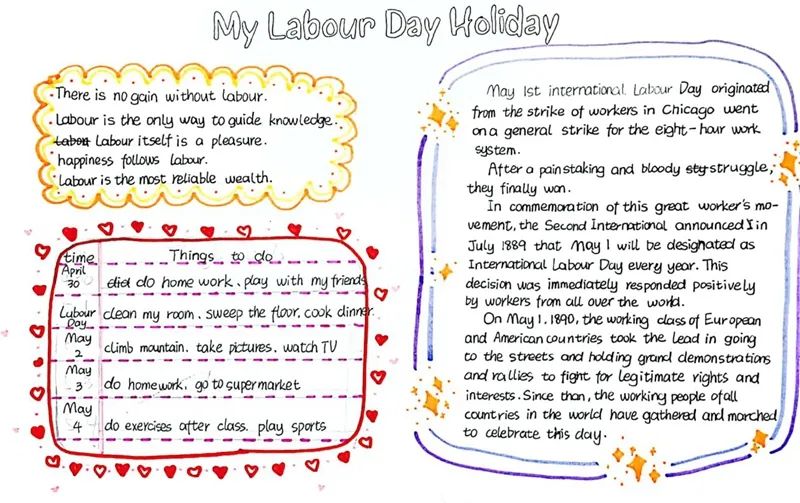 My Labour Day Holiday
There is no gain without labour.
Labour is the only way to guide knowledge.
Labou Labour itself is a pleasure.
happiness follows labour.
Labour is the most reliable wealth.
time Things to do
April 30 did do home work、play with my friends
Labour Day clean my room、sweep the floor、cook dinner
May 2 climb mountain、take pictures、watch TV
May 3 do homework、go to supermarket
May 4 do exercises after class、play sports
May 1st international Labour Day originated
from the strike of workers in Chicago went
on a general strike for the eight-hour work
system.
After a painstaking and bloody sty struggle,
they finally won.
In commemoration of this great worker's mo-
vement, the Second International announced I in
July 1889 that May 1 will be designated as
International Labour Day every year. This
decision was immediately responded positively
by workers from all over the world.
On May 1, 1890, the working class of European
and American countries took the lead in going
to the streets and holding grand demonstrations
and rallies to fight for legitimate rights and
interests. Since than, the working people of all
countries in the world have gathered and marched
to celebrate this day.